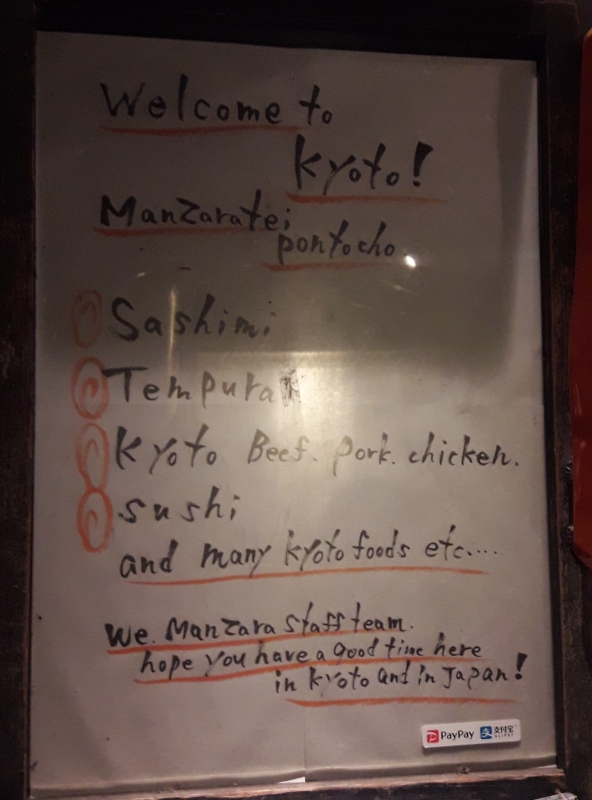 Welcome to
Kyoto!
Manzaratei
pontocho
Sashimi
Tempura
Kyoto Beef. Pork. chicken.
sushi
and many kyoto foods etc.....
We. Manzara staff team.
hope you have a good time here
in kyoto and in Japan!
PayPay 支付宝
ALIPAY